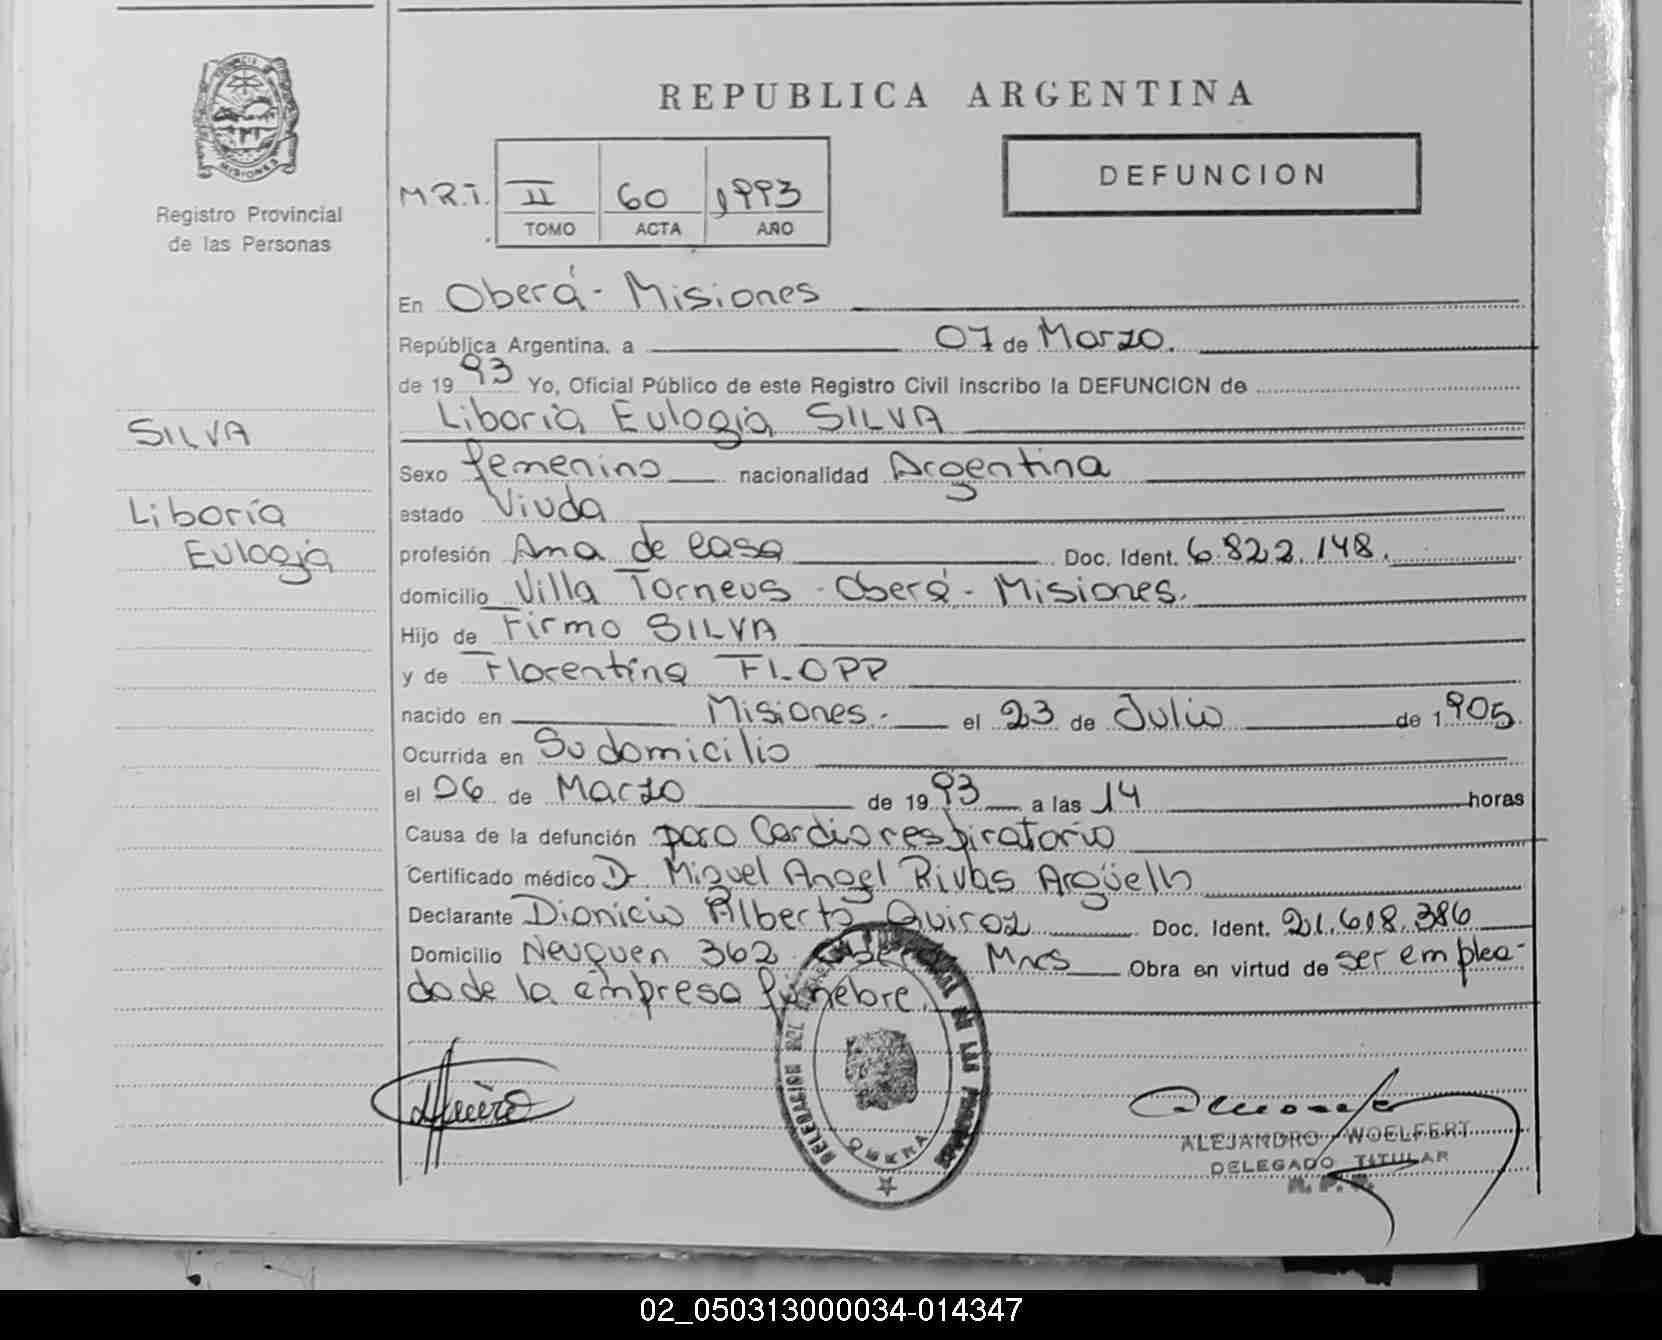 REPUBLICA ARGENTINA
PROVINCIA DE
MISIONES
Registro Provincial
de las Personas
M.R.I. II 60 1993
TOMO ACTA AÑO
DEFUNCION
En Oberá - Misiones
República Argentina, a 07 de Marzo.
de 19 93 Yo, Oficial Público de este Registro Civil inscribo la DEFUNCION de
Liboria Eulogia SILVA
SILVA
Liboria
Eulogia
Sexo femenino nacionalidad Argentina
estado Viuda
profesión Ama de casa Doc. Ident. 6.822.148.
domicilio Villa Torneus - Oberá - Misiones.
Hijo de Firmo SILVA
y de Florentina FLOPP
nacido en Misiones. el 23 de Julio de 1905
Ocurrida en Su domicilio
el 06 de Marzo de 19 93 a las 14 horas
Causa de la defunción paro Cardiorespiratorio
Certificado médico Dr Miguel Angel Rivas Argüello
Declarante Dionicio Alberto Quiroz Doc. Ident. 21.618.386
Domicilio Neuquen 362 Oberá Mnes Obra en virtud de ser emplea-
do de la empresa fúnebre.
ALEJANDRO WOELFERT
DELEGADO TITULAR
R. P. P.
02_050313000034-014347